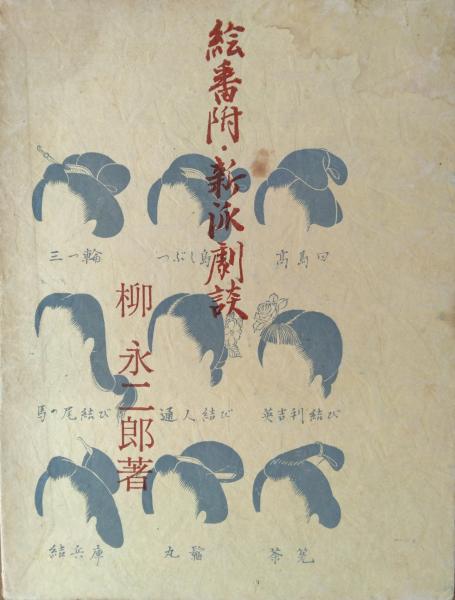 絵番附・新派劇談
柳 永二郎著
三つ輪
つぶし島
高島田
馬の尾結び
通人結び
英吉利結び
結兵庫
丸髷
茶筅